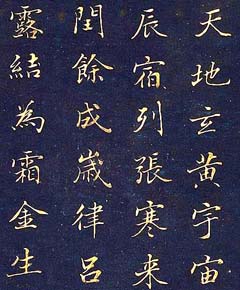 天地玄黄宇宙
辰宿列張寒来
閏餘成歳律呂
露結為霜金生